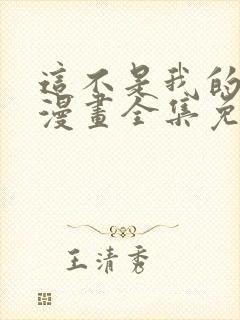 這不是我的
漫畫全集免
王清秀